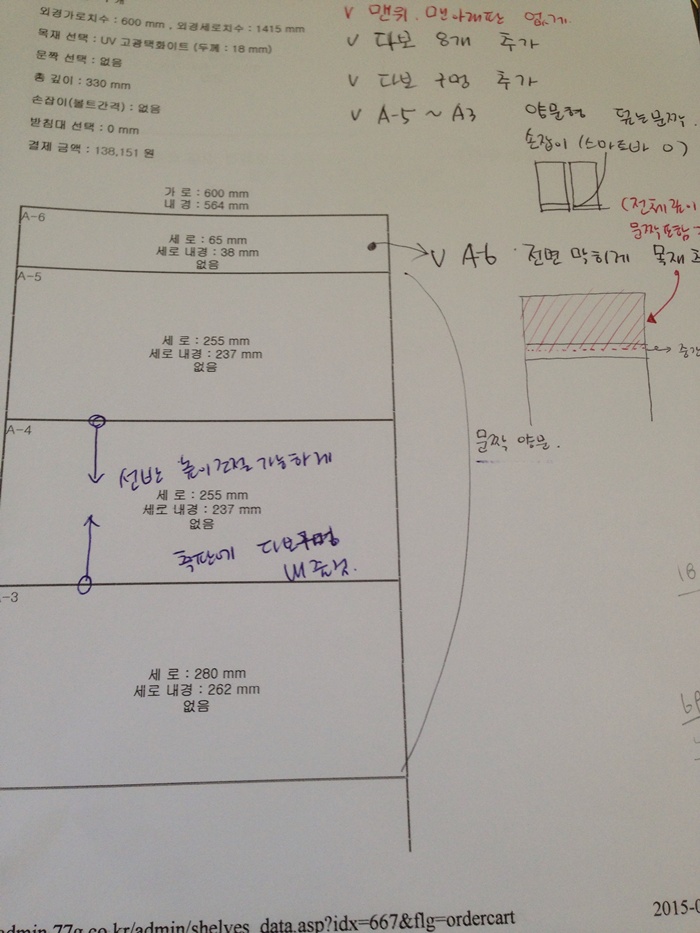 외경가로치수 : 600 mm , 외경세로치수 : 1415 mm
목재 선택 : UV 고광택화이트 (두께 : 18 mm)
문짝 선택 : 없음
총 깊이 : 330 mm
손잡이(볼트간격) : 없음
받침대 선택 : 0 mm
결제 금액 : 138,151 원
V 맨위, 맨아래판 없게.
V 다보 8개 추가
V 다보 구멍 추가
V A-5 ~ A3 양문형 문짝.
손잡이 (스마트바 O)
(전체깊이
문짝포함
가 로 : 600 mm
내 경 : 564 mm
A-6
세 로 : 65 mm
세로 내경 : 38 mm
없음
V A-6 전면 막히게 목재
A-5
세 로 : 255 mm
세로 내경 : 237 mm
없음
문짝 양문.
A-4
선반 높이조절 가능하게
세 로 : 255 mm
세로 내경 : 237 mm
없음
측판에 다보구멍
내주세요.
-3
세 로 : 280 mm
세로 내경 : 262 mm
없음
18
admin.77g.co.kr/admin/shelves_data.asp?idx=667&flg=ordercart
2015-0